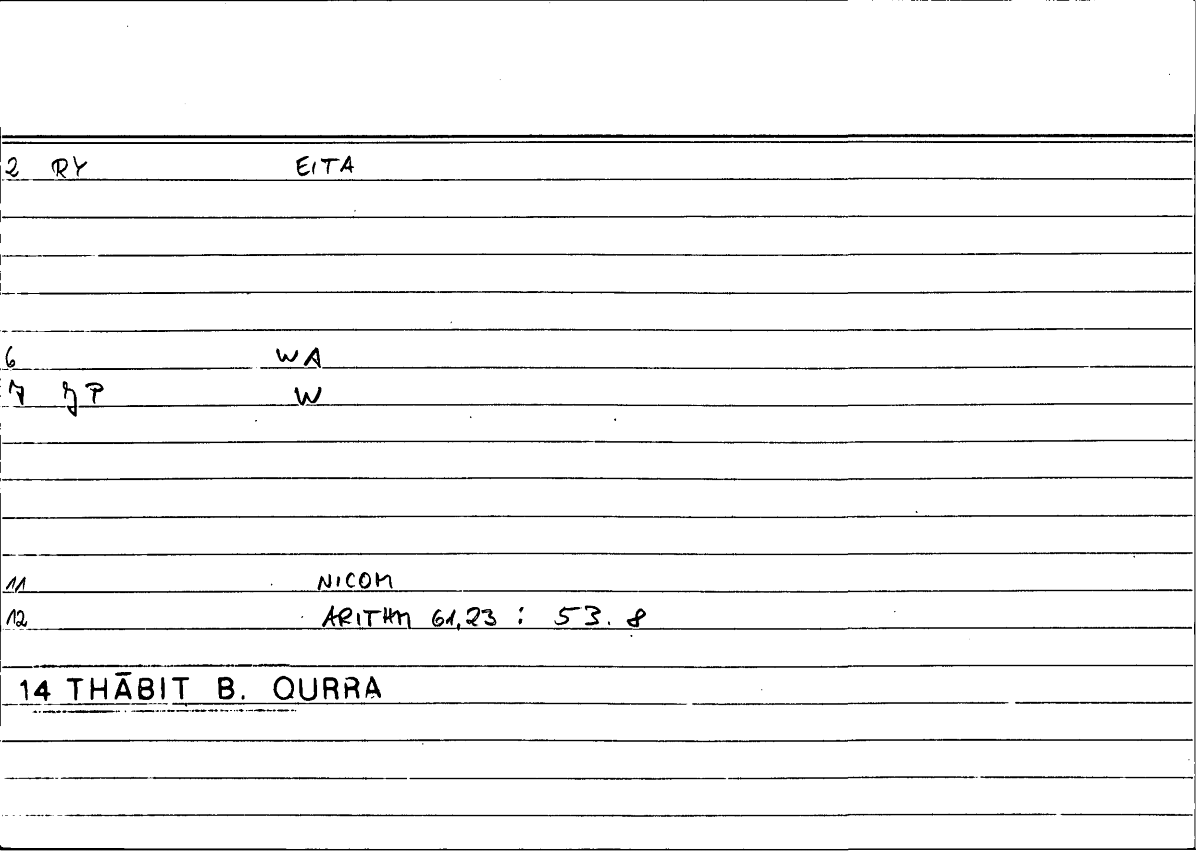 2 RY EITA
6 WA
7 JP W
11 NICOM
12 ARITHM 61,23 : 53. 8
14 THĀBIT B. QURRA